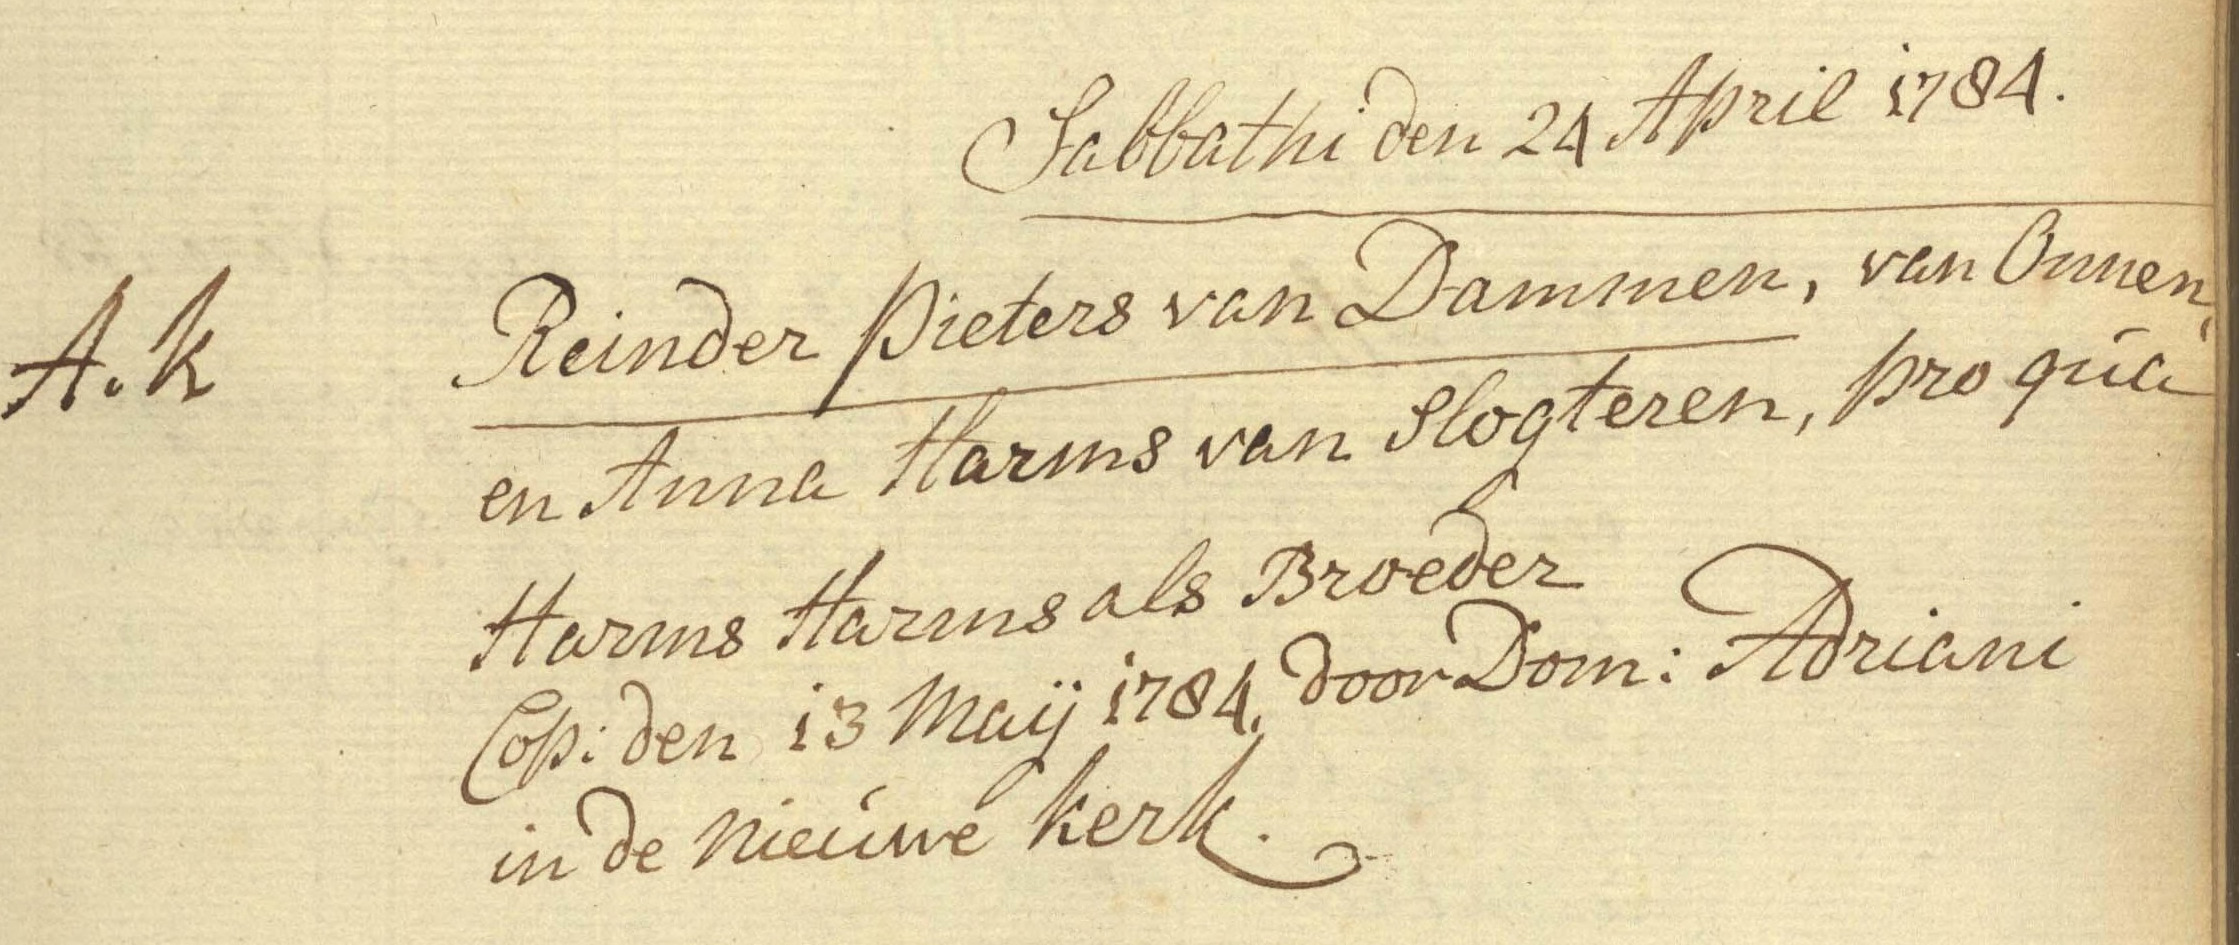 Sabbathi den 24 April 1784.
A.k Reinder Pieters van Dammen, van Onnen,
en Anna Harms van Slogteren, pro qua
Harms Harms als Broeder
Cop: den 13 Maij 1784, door Dom: Adriani
in de Nieuwe kerk.